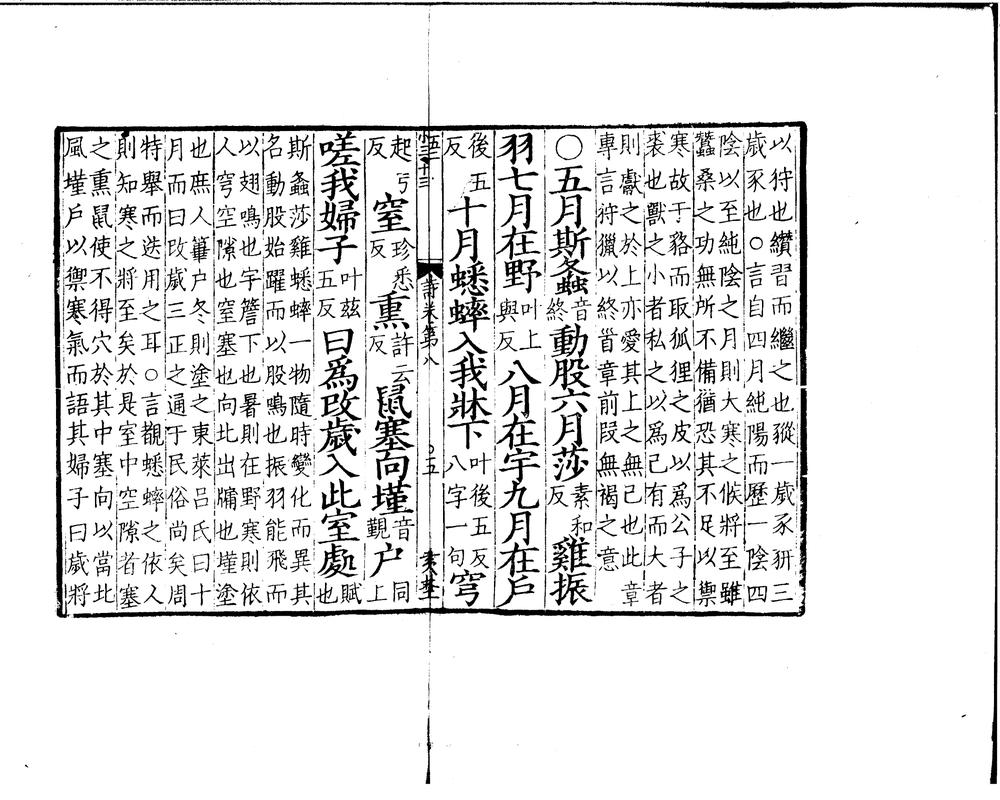 以狩也纘習而繼之也豵一歲豕豜三
歲豕也○言自四月純陽而歷一陰四
陰以至純陰之月則大寒之候將至雖
蠶桑之功無所不備猶恐其不足以禦
寒故于貉而取狐狸之皮以爲公子之
裘也獸之小者私之以爲己有而大者
則獻之於上亦愛其上之無已也此章
專言狩獵以終首章前段無褐之意
○五月斯螽音終動股六月莎素和反雞振
羽七月在野叶上與反八月在宇九月在戶
後五反十月蟋蟀入我牀下叶後五反八字一句穹
詩卷第八 ○五
起弓反窒珍悉反熏許云反鼠塞向墐音覲户同上
嗟我婦子叶兹五反曰爲改歲入此室處賦也
斯螽莎雞蟋蟀一物隨時變化而異其
名動股始躍而以股鳴也振羽能飛而
以翅鳴也宇簷下也暑則在野寒則依
人穹空隙也窒塞也向北出牖也墐塗
也庶人蓽户冬則塗之東萊呂氏曰十
月而曰改歲三正之通于民俗尚矣周
特舉而迭用之耳○言覩蟋蟀之依人
則知寒之將至矣於是室中空隙者塞
之熏鼠使不得穴於其中塞向以當北
風墐戶以禦寒氣而語其婦子曰歲將